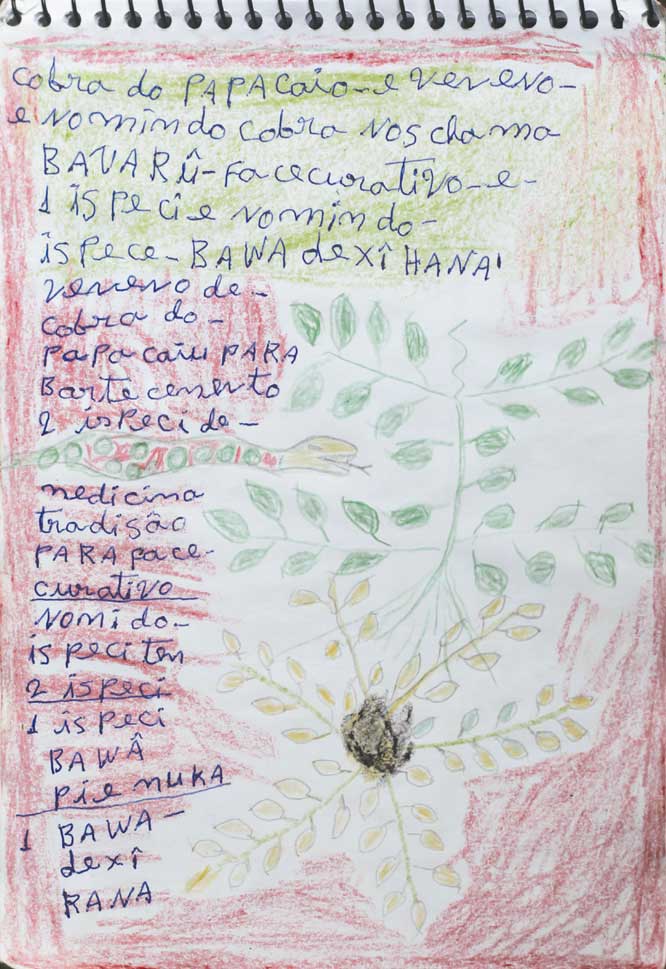 cobra do PAPAcaio-e veneno-
e Nomindo cobra Nos chama
BAUARÛ-Facecurativo-e-
1 ISPECI e Nomindo-
ispece-BAWA dexî HANA'
veneno de-
cobra do-
PaPa caiu PARA
Bartecemento
2 isPeci de-
medicina
tradisão
PARA pace-
curativo
Nomi do-
is peci tem
2 ispeci
1 ispeci
BAWÂ
pie nuKA
1 BAWA-
dexî
RANA